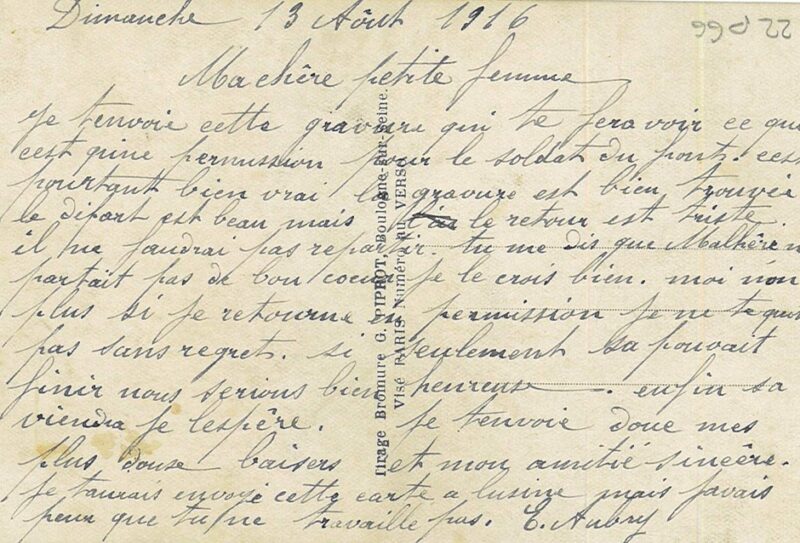 Dimanche 13 Août 1916
22 d 66
Ma chère petite femme
Je tenvoie cette gravure qui te feravoir ce que
cest quine permission pour le soldat du front. cest
pourtant bien vrai la gravure est bien trouvée
le dipart est beau mais le retour est triste
il ne faudrai pas repartir. tu me dis que Malhère n
partait pas de bon coeur je le crois bien. moi non
plus si je retourne en permission je ne te
pas sans regret. si seulement sa pouvait
finir nous serions bien heureus. enfin sa
viendra je lespère. Je tenvoie donc mes
plus douse baisers et mon amitié sincère.
Je taurais envoyé cette carte a lusine mais javais
peur que tu ne travaille pas. E. Aubry
Tirage Bromure G. PIPROT, Boulogne-sur-Seine.
Visé PARIS Numéro au VERSO